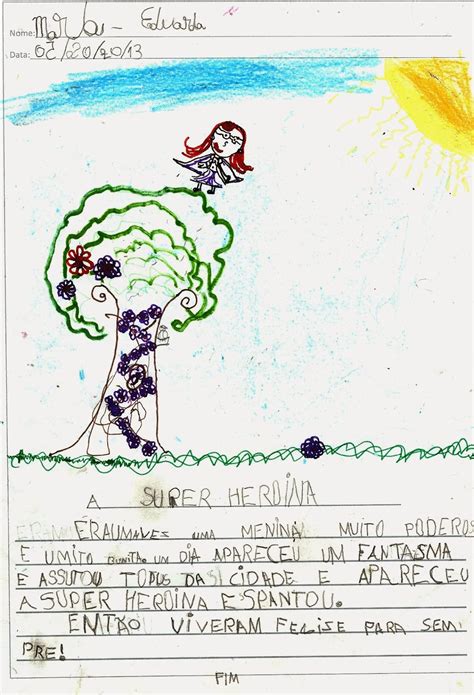 Nome: Maria - Eduarda
Data: 02/20/20/13
A SUPER HEROINA
ERAUMAVES UMA MENINA MUITO PODEROS
E UMITO BONITA. UM DIA APARECEU UM FANTASMA
E ASSUTOU TODOS DA CIDADE E APARECEU
A SUPER HEROINA E SPANTOU.
ENTÃO VIVERAM FELISE PARA SEM
PRE!
FIM